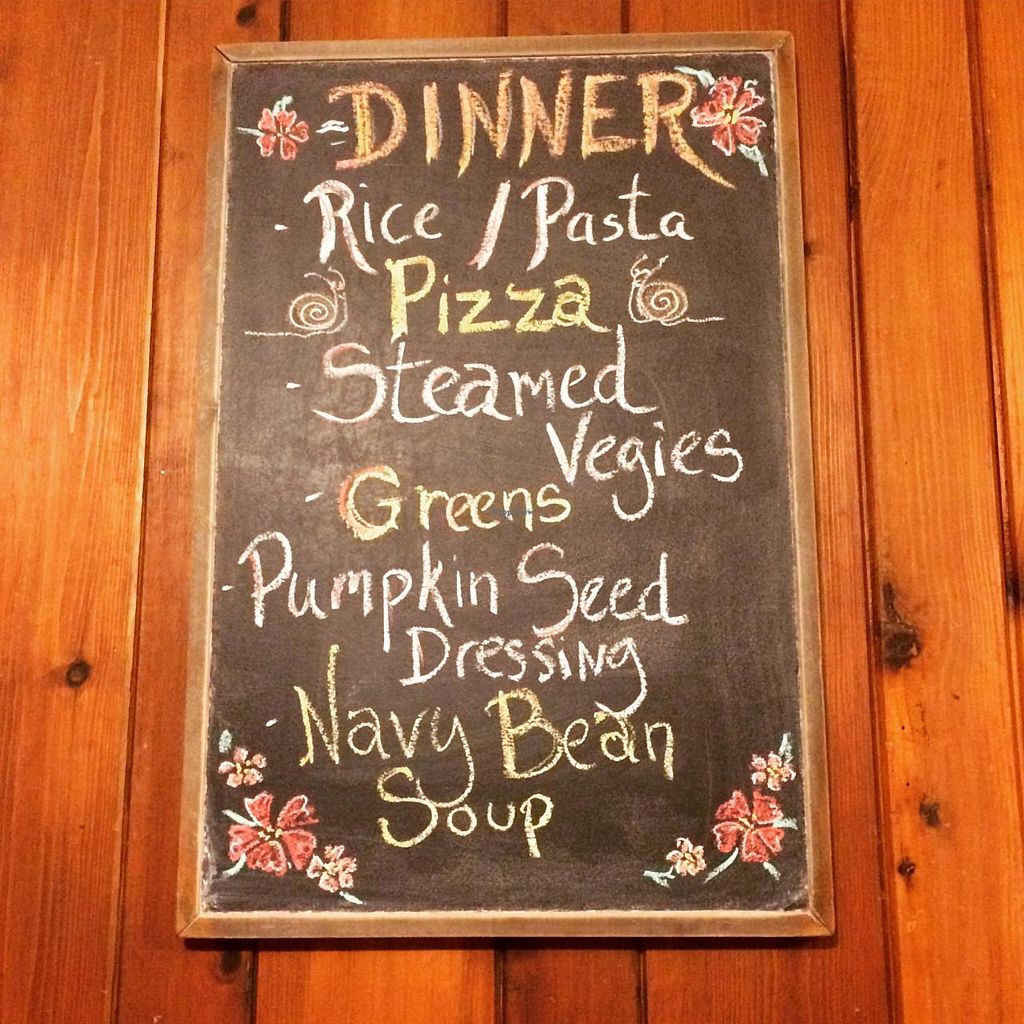 DINNER
- Rice / Pasta
Pizza
- Steamed
Vegies
- Greens
- Pumpkin Seed
Dressing
- Navy Bean
Soup